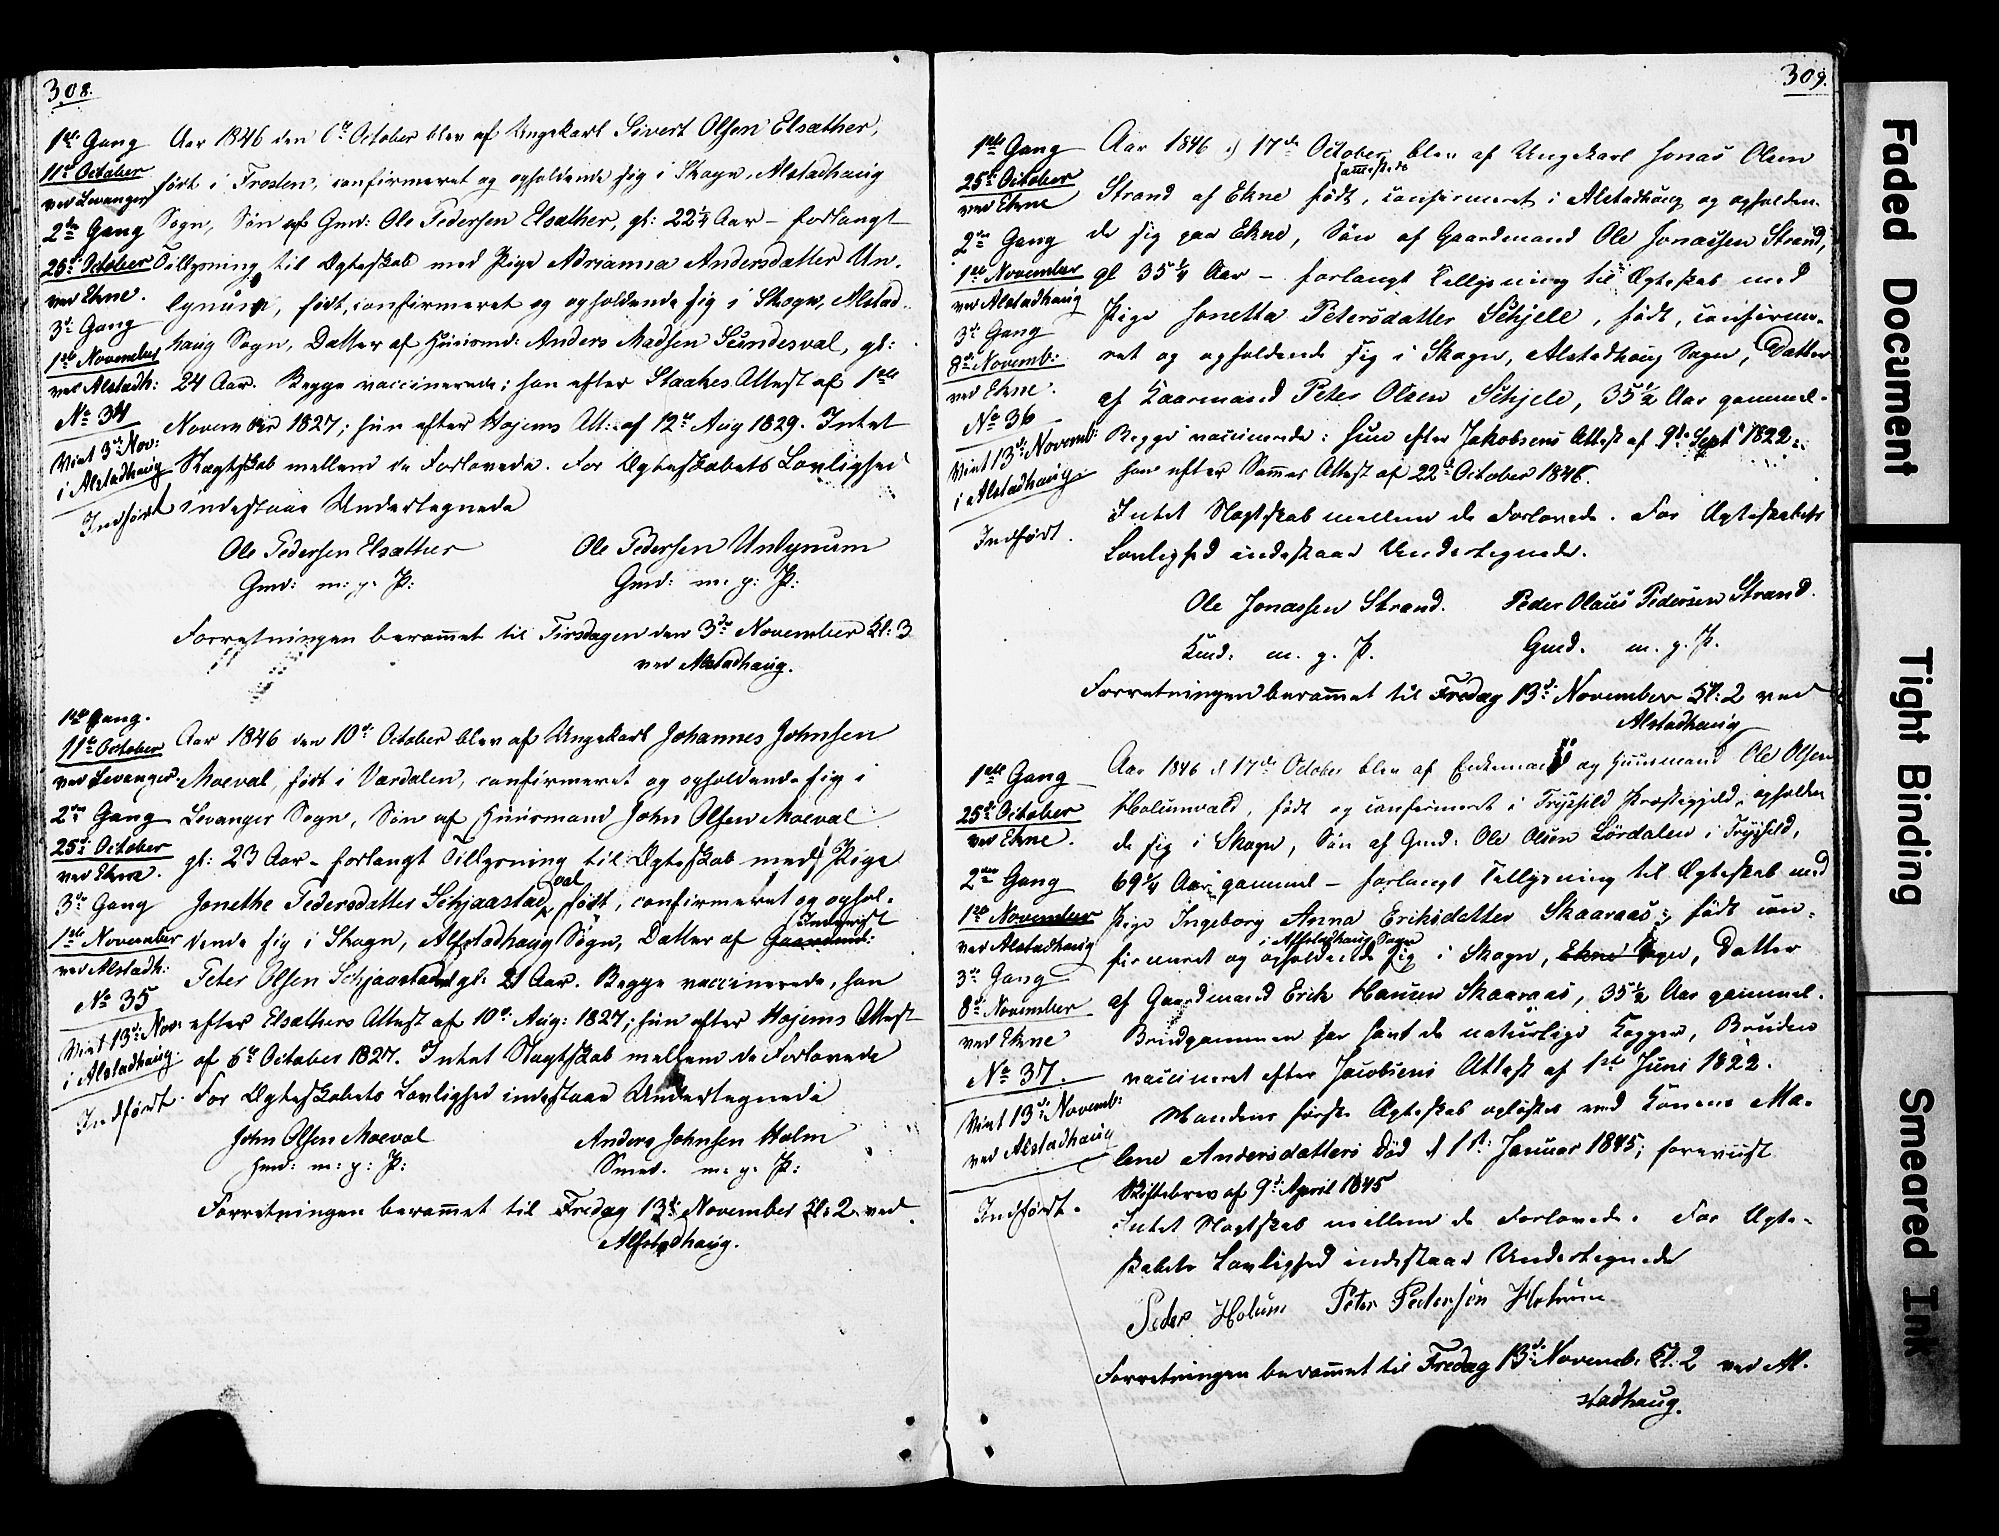 308.
1ste Gang
11te October
ved Levanger
2den Gang
25de October
ved Ekne.
3die Gang
1ste November
ved Alstadh:
No 34
Viet 3die Nov:
i Alstadhaug
Indført
Aar 1846 den 6te October blev af Ungekarl Sivert Olsen Elsæther,
født i Frosten, confirmeret og opholdende sig i Skogn, Alstadhaug
Sogn, Søn af Gmd: Ole Pedersen Elsæther, gl: 22¼ Aar – forlangt
Tillysning til Ægteskab med Pige Adrianna Andersdatter Un-
lynum, født, confirmeret og opholdende sig i Skogn, Alstad-
haug Sogn, Datter af Huusmd: Anders Madsen Sundesval, gl:
24 Aar. Begge vaccinerede; han efter Staakes Attest af 1ste
November 1827; hun efter Hojems Att: af 12te Aug 1829. Intet
Slægtskab mellem de Forlovede. For Ægteskabets Lovlighed
indestaae Undertegnede
Ole Pedersen Elsæther Ole Pedersen Unlynum
Gmd: m: p: P: Gmd: m: p: P:
Forretningen beramet til Tirsdagen den 3die November Kl: 3
ved Alstadhaug.
1ste Gang.
11te October
ved Levanger.
2den Gang
25de October
ved Ekne.
3die Gang
1ste November
ved Alstadh:
No 35
Viet 13de Nov:
i Alstadhaug.
Indført.
Aar 1846 den 10de October blev af Ungekarl Johannes Johnsen
Moeval, født i Værdalen, confirmeret og opholdende sig i
Levanger Sogn, Søn af Huusmand John Olsen Moeval
gl: 23 Aar – forlangt Tillysning til Ægteskab med Pige
val
Jonethe Pedersdatter Schjaastad, født, confirmeret og ophol-
Inderist
dende sig i Skogn, Alstadhaug Sogn, Datter af Gaardmd:
Peter Olsen Schjaastad gl: 21 Aar. Begge vaccinerede, han
efter Elsæthers Attest af 10de Aug: 1827; hun efter Hojems Attest
af 6te October 1827. Intet Slægtskab mellem de Forlovede
For Ægteskabets Lovlighed indestaae Undertegnede
John Olsen Moeval Anders Johnsen Holm
Hmd: m: p: P: Smed. m: p: P:
Forretningen beramet til Fredag 13de November Kl: 2 ved
Alstadhaug.
309.
1ste Gang
25de October
ved Ekne
2den Gang
1ste November
ved Alstadhaug
3die Gang
8de Novemb:
ved Ekne.
No 36
Viet 13de Novemb:
i Alstadhaug.
Indført.
Aar 1846 d 17de October blev af Ungekarl Jonas Olsen
sammestede
Strand af Ekne født, confirmeret i Alstadhaug og opholden-
de sig paa Ekne, Søn af Gaardmand Ole Jonassen Strand,
gl 35¼ Aar – forlangt Tillysning til Ægteskab med
Pige Jonetta Petersdatter Schjele, født, confirme-
ret og opholdende sig i Skogn, Alstadhaug Sogn, Datter
af Kaarmand Peter Olsen Schjele, 35½ Aar gammel.
Begge vaccinerede: hun efter Jakobsens Attest af 9de Sept 1822,
han efter Sommers Attest af 22de October 1846.
Intet Slægtskab mellem de Forlovede. For Ægteskabets
Lovlighed indestaae Undertegnede.
Ole Jonassen Strand. Peder Olaus Pedersen Strand.
Kmd: m. p. P. Gmd. m. p. P.
Forretningen beramet til Fredag 13de November Kl: 2 ved
Alstadhaug
1ste Gang
25de October
ved Ekne.
2den Gang
1ste November
ved Alstadhaug
3die Gang
8de November
ved Ekne
No 37.
Viet 13de Novemb:
ved Alstadhaug
Indført.
Aar 1846 d 17de October blev af Enkemand og Huusmand Ole Olsen
Holumvald, født og confirmeret i Præstegjeld, opholden-
de sig i Skogn, Søn af Gmd: Ole Olsen Lørdalen i
69¼ Aar gammel – forlangt Tillysning til Ægteskab med
Pige Ingeborg Anna Eriksdatter Skaaraas, født con-
i Alstadhaug Sogn
firmeret og opholdende sig i Skogn, Ekne Sogn, Datter
af Gaardmand Erik Hansen Skaaraas, 35½ Aar gammel.
Brudgommen har havt de naturlige Kopper, Bruden
vaccineret efter Jacobsens Attest af 1ste Juni 1822.
Mandens første Ægteskab opløstes ved Konens Ma-
lene Andersdatters Død d 1ste Januar 1845; foreviist
Skiftebrev af 9de April 1845
Intet Slægtskab mellem de Forlovede. For Ægte-
skabets Lovlighed indestaae Undertegnede
Peder Holum Peter Pedersen Holum
Forretningen beramet til Fredag 13de Novemb: Kl: 2 ved Al-
stadhaug.
Faded Document
Tight Binding
Smeared Ink